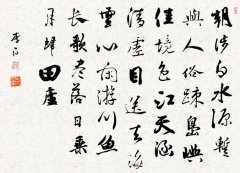 朝涉白水源暫
與人俗疎島嶼
佳境色江天涵
清虛目送去海
雲心閑游川魚
長歌盡落日乘
月歸田廬